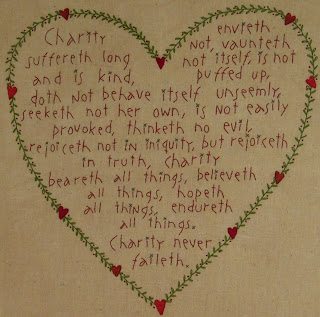 Charity envieth
suffereth long not, vaunteth
and is kind, not itself, is not
puffed up,
doth not behave itself unseemly,
seeketh not her own, is not easily
provoked, thinketh no evil,
rejoiceth not in iniquity, but rejoiceth
in truth, Charity
beareth all things, believeth
all things, hopeth
all things, endureth
all things.
Charity never
faileth.